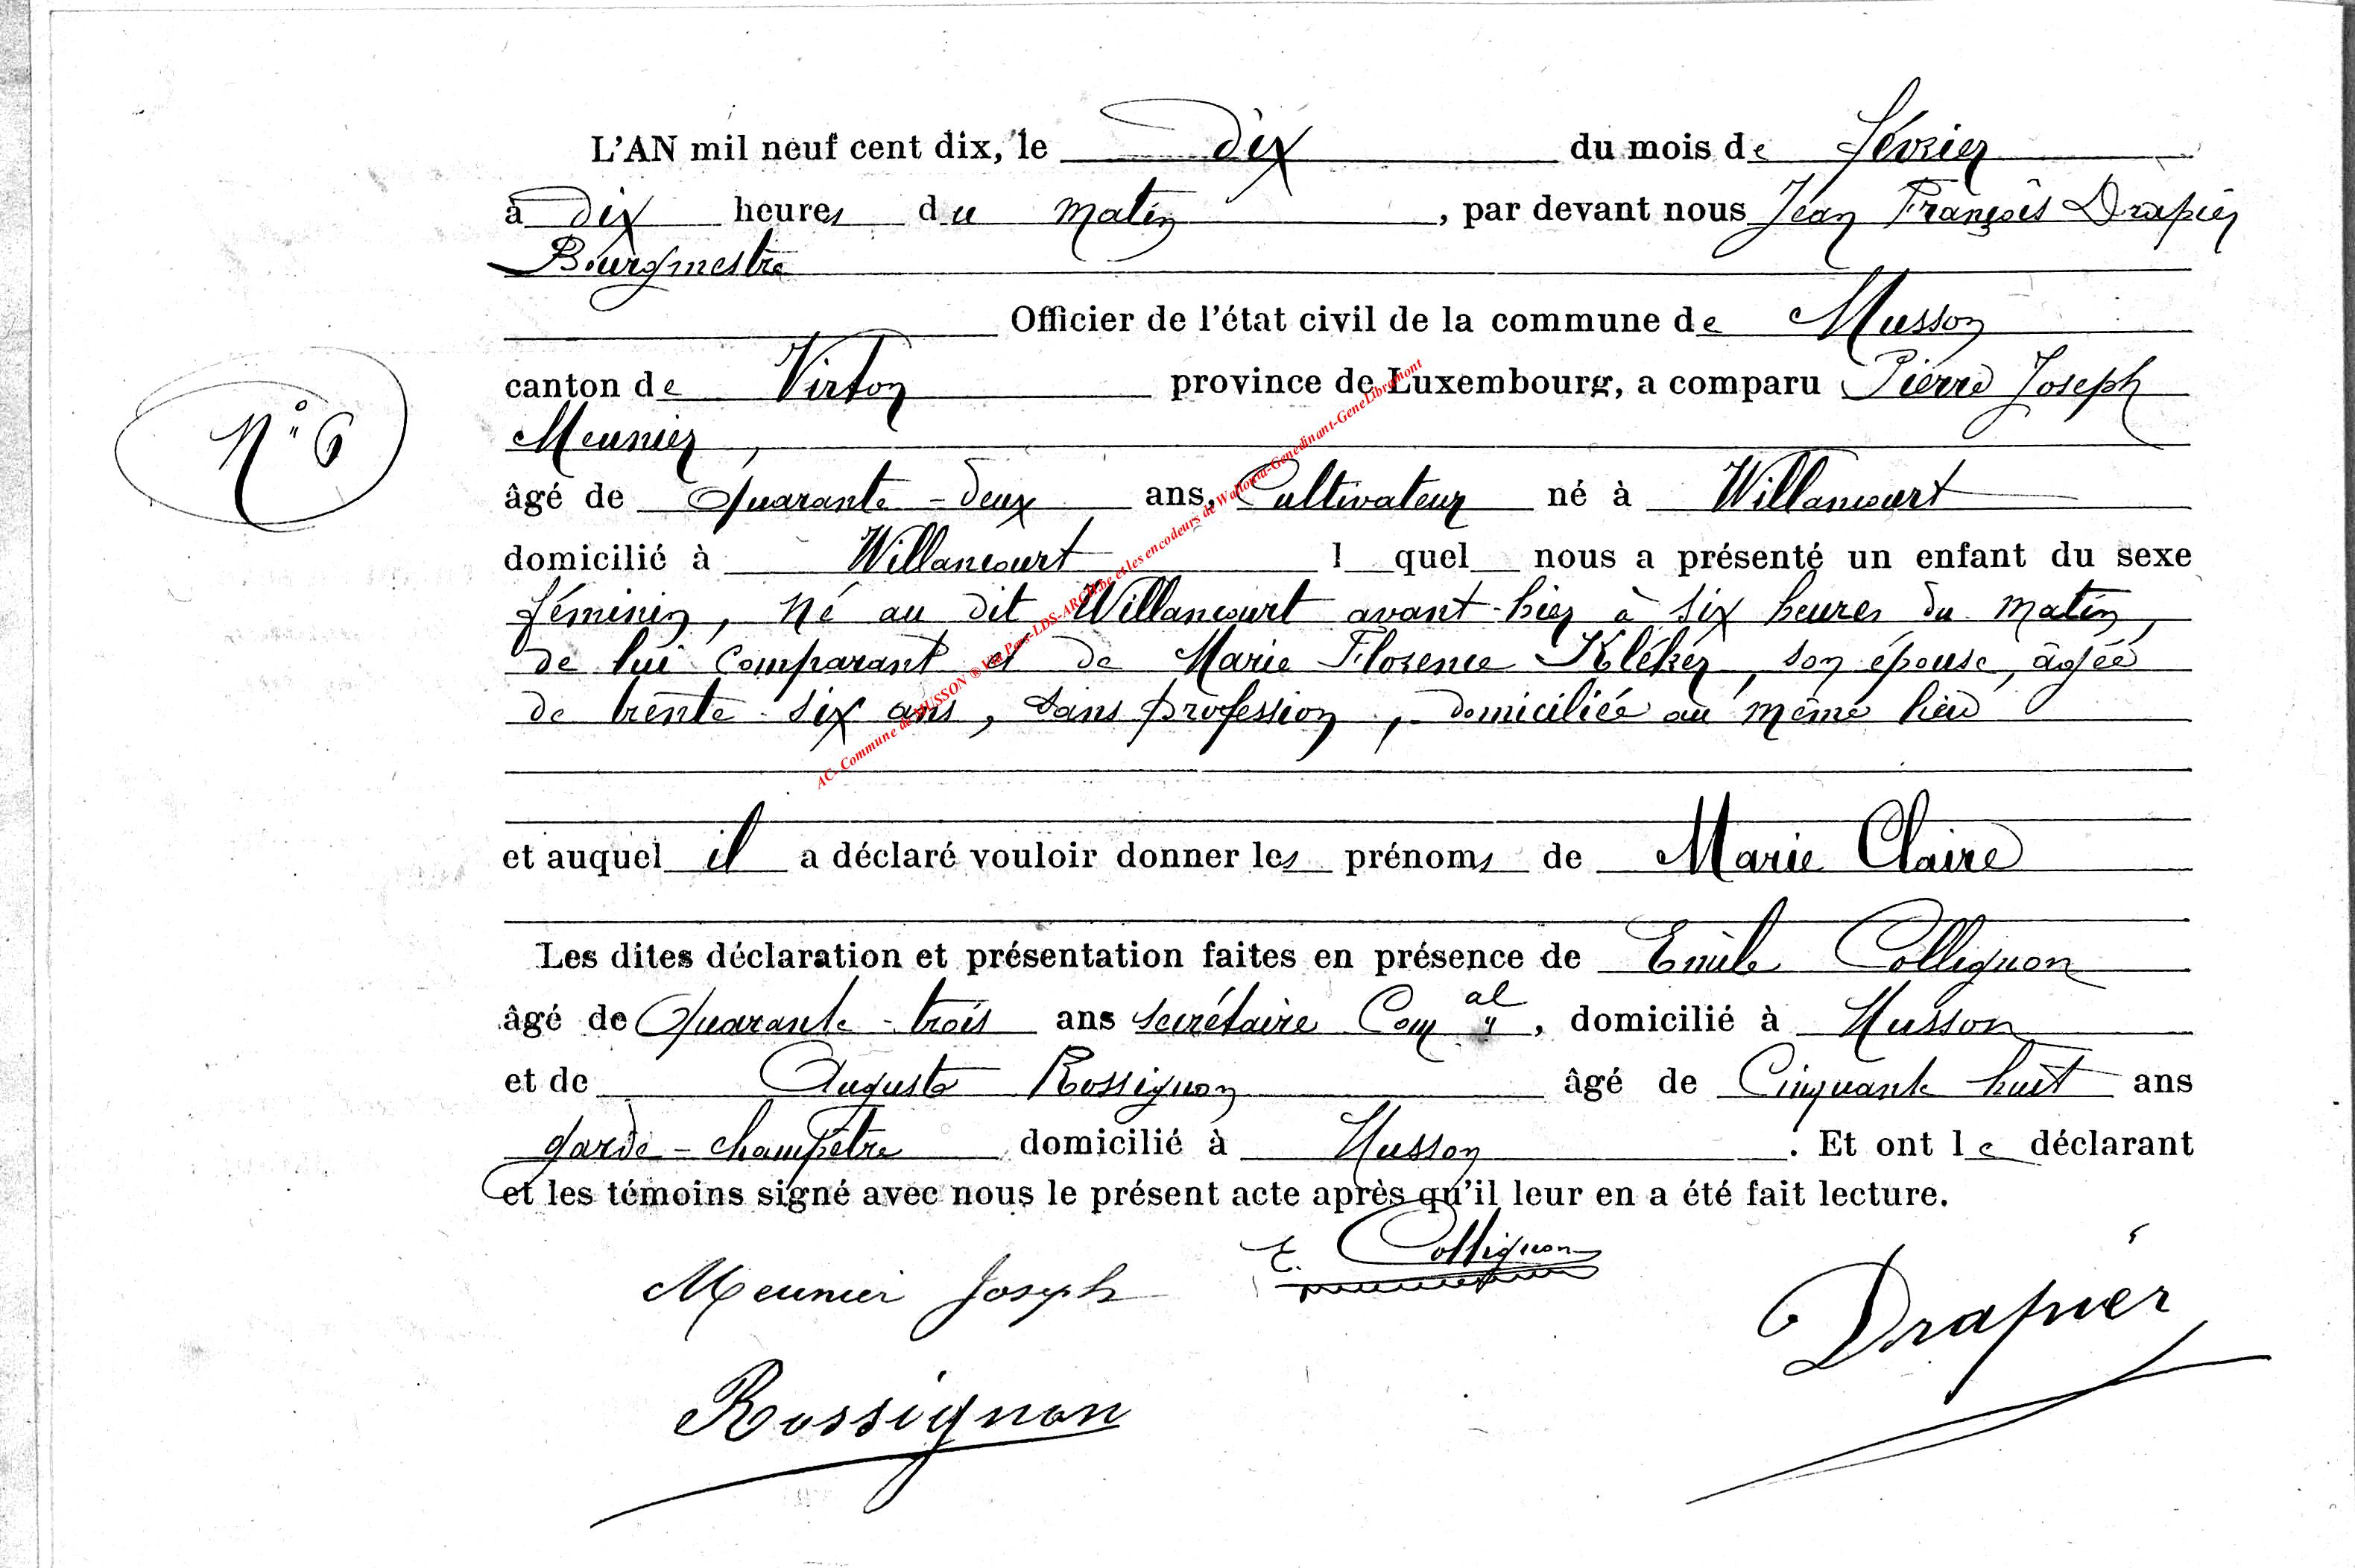 L'AN mil neuf cent dix, le dix du mois de février
à dix heures du matin, par devant nous Jean François Drapier
Bourgmestre
Officier de l'état civil de la commune de Musson
canton de Virton province de Luxembourg, a comparu Pierre Joseph
N° 6
Meunier,
âgé de Quarante-deux ans, Cultivateur né à Willancourt
domicilié à Willancourt l quel nous a présenté un enfant du sexe
féminin, né au dit Willancourt avant-hier à six heures du matin,
de lui comparant et de Marie Florence Kléker, son épouse, âgée
de trente-six ans, sans profession, domiciliée au même lieu
et auquel il a déclaré vouloir donner les prénoms de Marie Claire
Les dites déclaration et présentation faites en présence de Emile Collignon
âgé de Quarante-trois ans secrétaire Com al, domicilié à Musson
et de Auguste Rossignon âgé de Cinquante huit ans
garde-champêtre domicilié à Musson. Et ont le déclarant
et les témoins signé avec nous le présent acte après qu'il leur en a été fait lecture.
E. Collignon
Meunier Joseph
Drapier
Rossignon
AC- Commune de MUSSON ® Via Pars-LDS-ARCH.be et les encodeurs de Wallonia-Genedinant-GeneLibramont